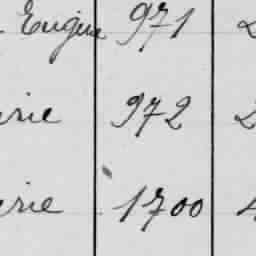 Eugène 971 2
erie 972 2
erie 1700 4